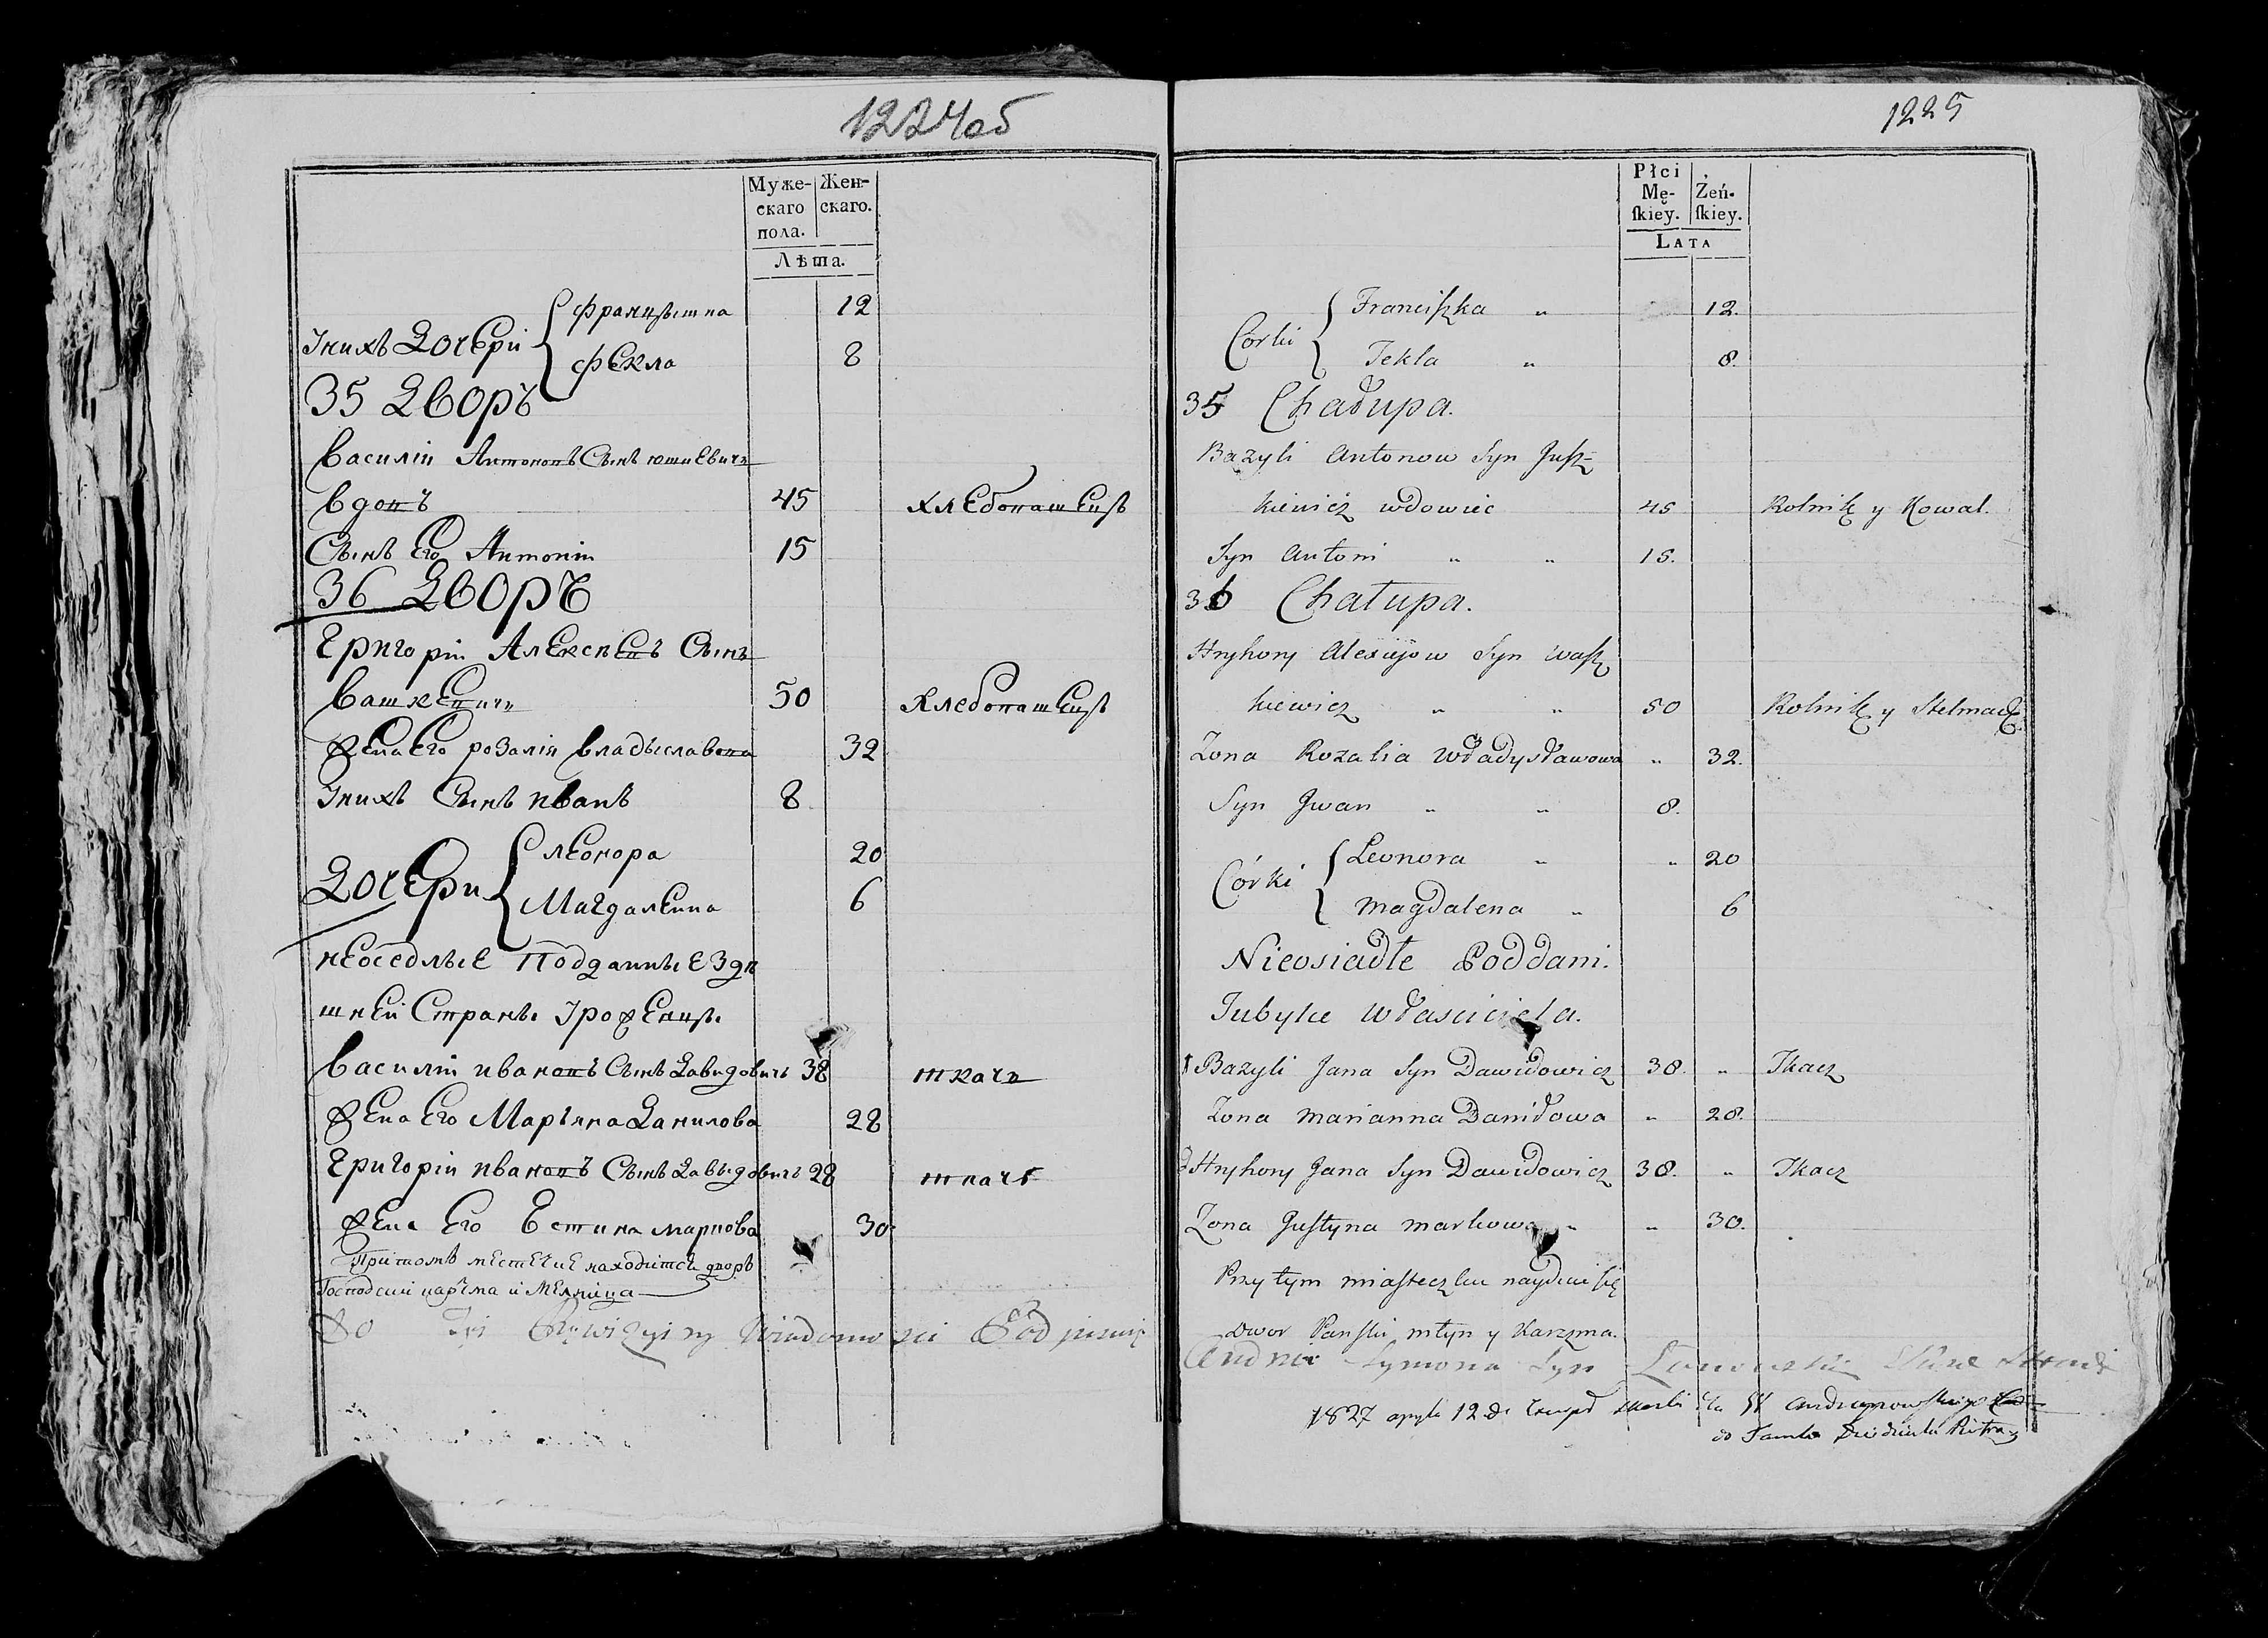 1224об
Муже-
скаго
пола.
Жен-
скаго.
Лѣта.
Францышка 12
Іихъ Дочери
Фекла 8
35 Дворъ
Василій Антоновъ Сынъ Юшкевичъ
вдовъ 45 хлебопашецъ
Сынъ Его Антоній 15
36 Дворъ
Григорій Алексѣевъ Сынъ
Вашкевичъ 50 хлебопашецъ
Жена Его розалія владыславова 32
Іихъ Сынъ иванъ 8
леонора 20
Дочери
Магдалена 6
неоседлые Подданные Здѣ
шней Страны Уроженцы
Василій ивановъ Сынъ Давидовичъ 38 ткачъ
Жена Его Марьяна Данилова 28
Григорій ивановъ Сынъ Давыдовичъ 28 ткачъ
Жена Его Естина маркова 30
Притомъ местечке находится дворъ
Господский карчма и Мелница
Do Tej Rewizyi wiadomosci Podpisuię
1225
Płci
Mę-
ſkiey.
Żeń-
ſkiey.
Lata
Franciſzka " 12.
Corki
Tekla " 8.
35 Chałupa.
Bazyli Antonow Syn Juſz-
kiewicz wdowiec 45 Rolnik y Kowal.
Syn Antoni " " 15.
36 Chałupa.
Hryhory Alexiejow Syn Waſz
kiewicz " " 50 Rolnik y Stelmach
Zona Rozalia Władysławowa " 32.
Syn Jwan " " 8.
Leonora " " 20
Córki
Magdalena " 6
Nieosiadłe Poddani.
Tubylce Właściciela.
1 Bazyli Jana Syn Dawidowicz 38. " Tkacz
Zona Marianna Daniłowa " 28.
2 Hryhory Jana Syn Dawidowicz 38. " Tkacz
Zona Juſtyna Markowa " " 30.
Przy tym miaſteczku nayduie ſię
Dwor Panſki młyn y Karczma.
Andrei Symona Syn
1827 12 d.
do